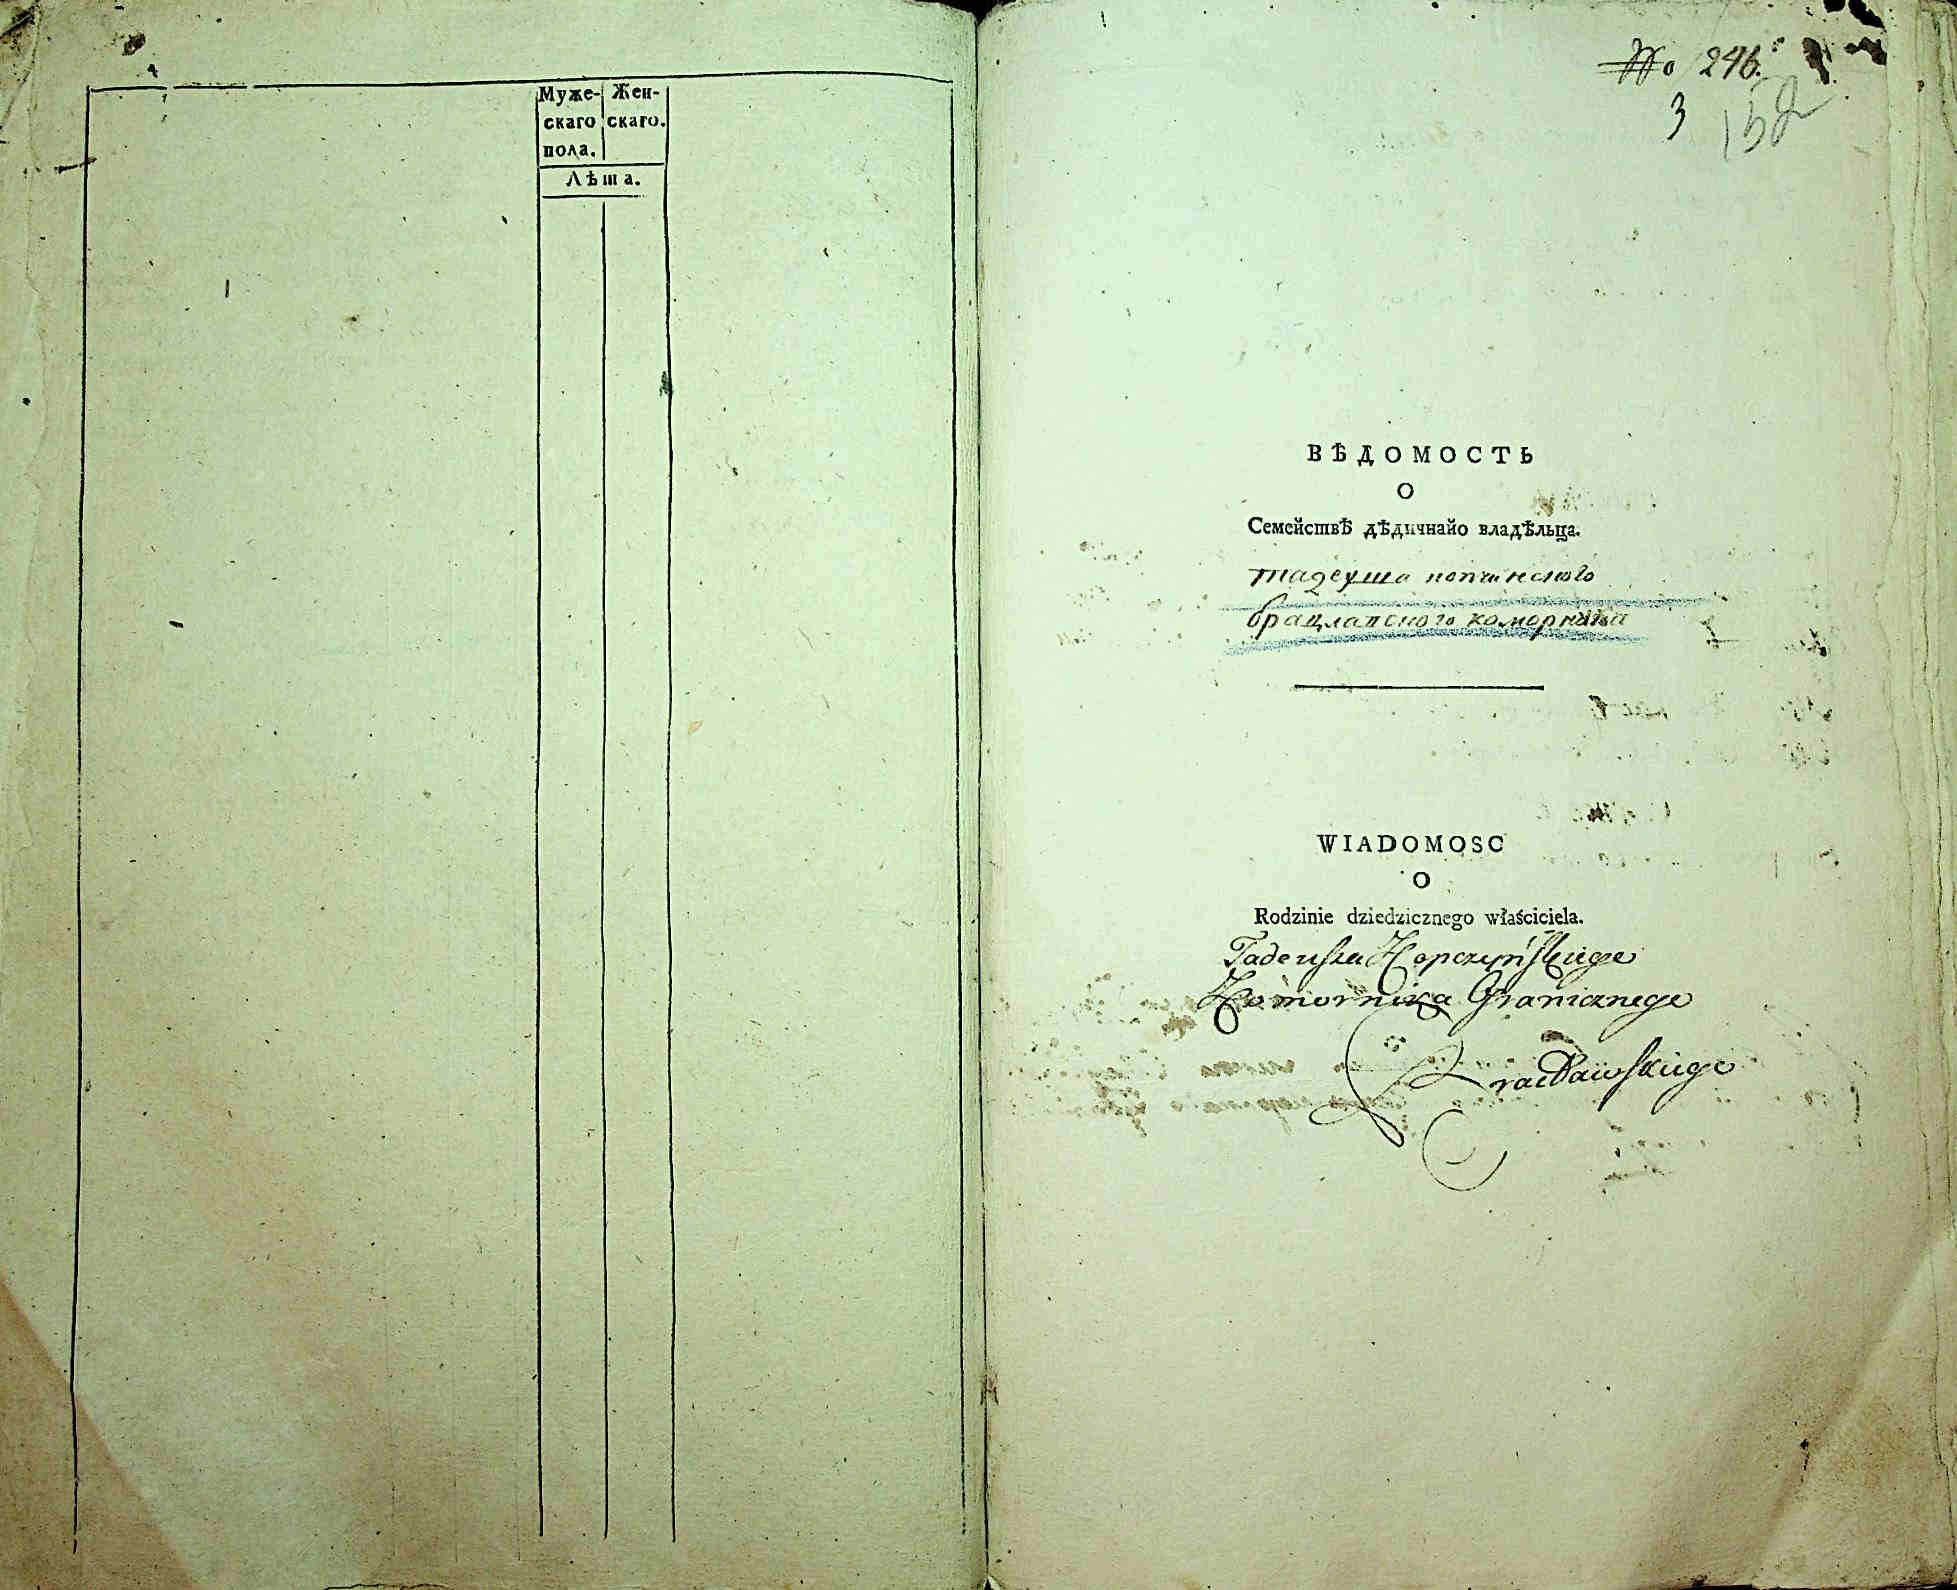 Муже- Жен-
скаго скаго.
пола.
Лѣта.
No 246.
3 152
ВѢДОМОСТЬ
О
Семействѣ дѣдичнайо владѣльца.
тадеуша копчинского
брацлавского коморника
WIADOMOSC
O
Rodzinie dziedzicznego właściciela.
Tadeusza Kopczyńskiego
Komornika Granicznego
Bracławskiego